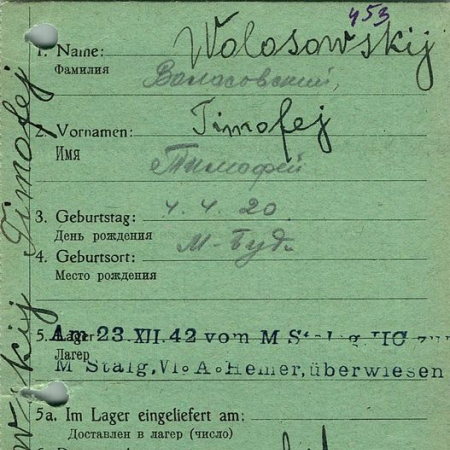 453
1. Name: Wolosowskij
Фамилия Волосовский,
2. Vornamen: Timofej
Имя Тимофей
3. Geburtstag: 4. 4. 20.
День рождения
4. Geburtsort: М-Буд
Место рождения
5. Lager: Am 23.XII.42 vom M Stalag
Лагер
M Stalg. VI. A. Hemer, überwiesen
5a. Im Lager eingeliefert am:
Доставлен в лагер (число)
Timofej